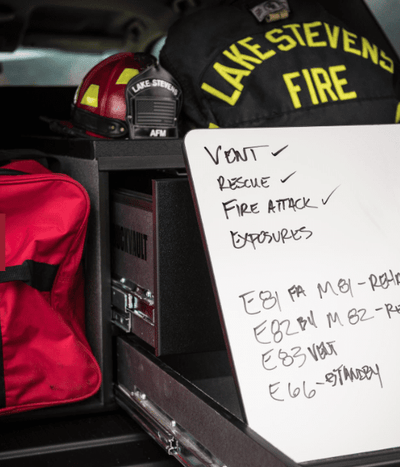 LAKE STEVENS
FIRE
LAKE STEVENS
AFM
VENT ✓
RESCUE ✓
FIRE ATTACK ✓
EXPOSURES
E81 FA M81-REHA
E82 BU M82-RE
E83 VENT
E66-STANDBY
VAULT